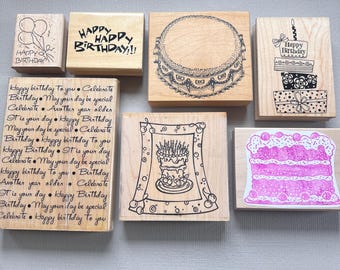 HAPPY
BIRTHDAY
HAPPY
HAPPY
BIRTHDAY!!!
Happy
Birthday
Happy birthday to you • Celebrate
Birthday • May your day be special
Celebrate • Another year older
It is your day • Happy Birthday
May your day be special • Birthday
Happy birthday to you • Celebrate
Happy Birthday • It is your day
Celebrate • May your day be special
Birthday • Happy birthday to you
Another year older • Celebrate
It is your day • Happy Birthday
Birthday • May your day be special
Celebrate • Happy birthday to you